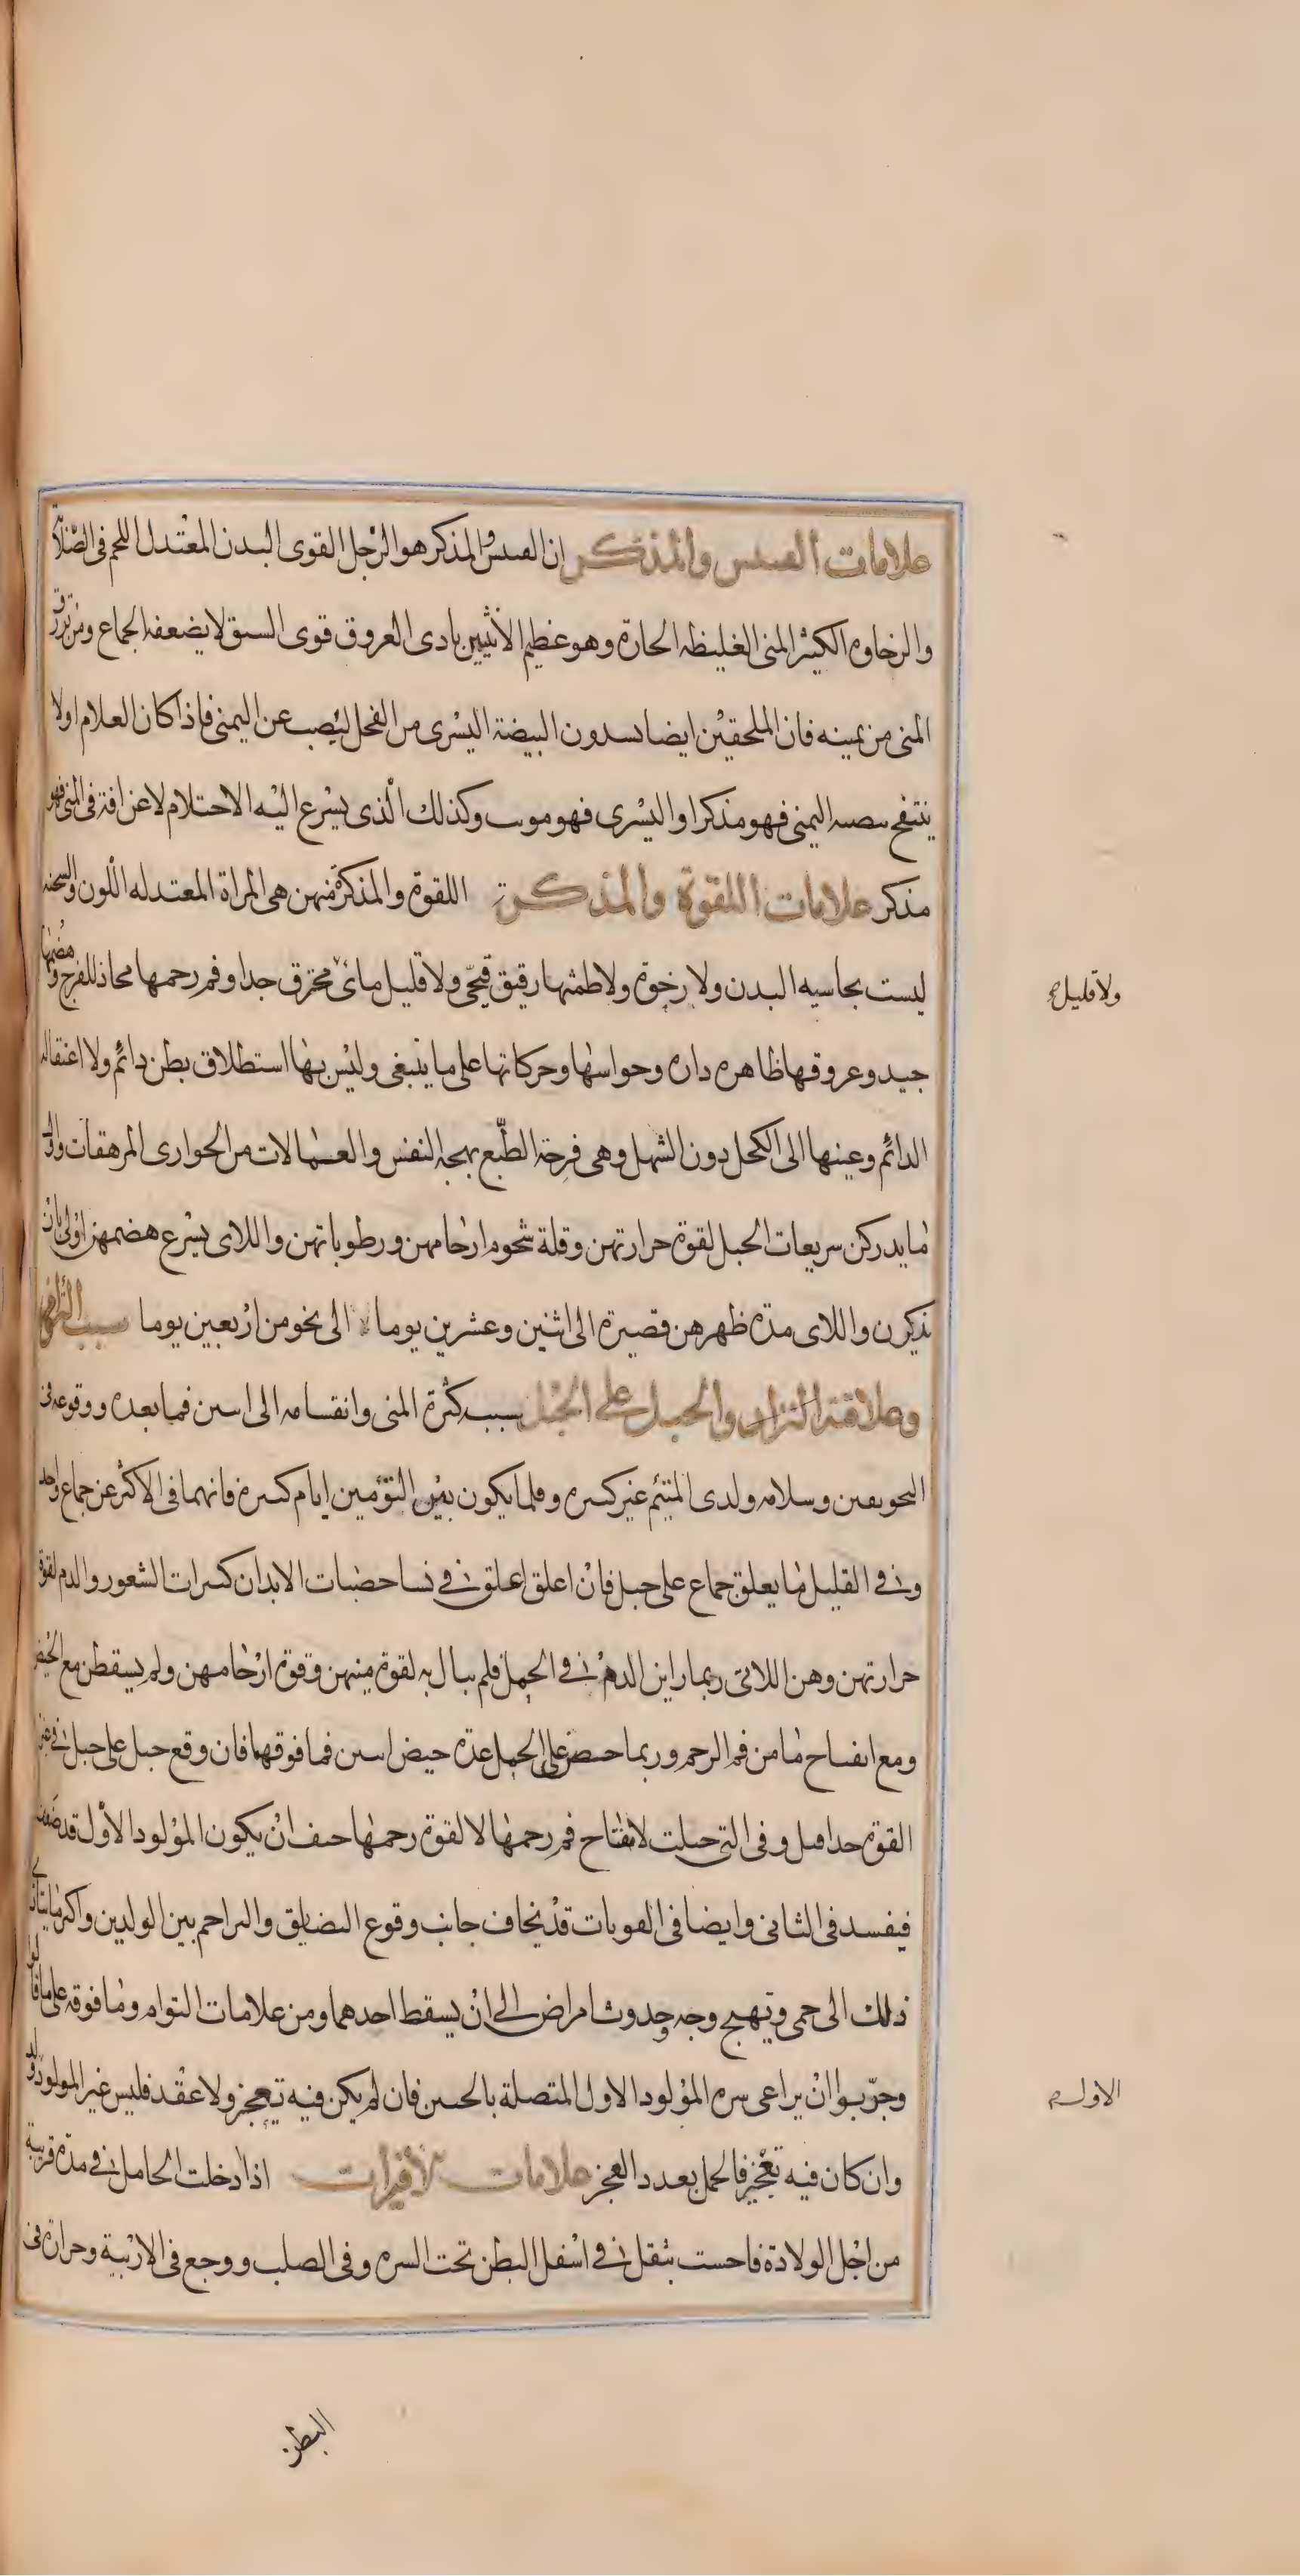 علامات العبيس والمذكر ان العبيس والمذكر هو الرجل القوى البدن المعتدل اللحم فى الصلابة
والرخاوه الكثير المنى الغليظه الحارة وهو عظيم الانثيين بادى العروق قوى السبق لا يضعفه الجماع ومن يزرق
المنى من يمينه فان الملحقين ايضا يسدون البيضة اليسرى من الفحل ليصب عن اليمنى فاذا كان الغلام اولا
ينتفخ بيضته اليمنى فهو مذكر او اليسرى فهو مونث وكذلك الذى يسرع اليه الاحتلام لا عن افة فى المنى فهو
مذكر علامات اللقوة والمذكرة اللقوة والمذكرة منهن هى المراة المعتدله اللون والسحنه
ليست بجاسيه البدن ولا رخوة ولا طمثها رقيق قيحى ولا قليل مائى محترق جدا وفم رحمها محاذ للفرج وهضمها
جيد وعروقها ظاهره داره وحواسها وحركاتها على ما ينبغى وليس بها استطلاق بطن دائم ولا اعتقاله
الدائم وعينها الى الكحل دون الشهل وهى فرحة الطبع بهجه النفس من الجوارى المرهقات واول
ما يدركن سريعات الحبل لقوة حرارتهن وقلة شحوم ارحامهن ورطوباتهن واللاى يسرع هضمهن اولى بان
يذكرن واللاى مدة ظهرهن قصيرة الى اثنين وعشرين يوما لا الى نحو من اربعين يوما سبب التوأم
والحبل على الحبل سبب كثرة المنى وانقسامه الى اثنين فما بعده ووقوعه فى
التجويفين وسلامه ولدى المتيئم غير كثيره وقلما يكون بين التوءمين ايام كثيره فانهما فى الاكثر عن جماع واحد
وفى القليل ما يعلق جماع على حبل فان اعلق اعلق فى نسا خصبات الابدان كثيرات الشعور والدم لقوة
حرارتهن وهن اللاتى ربما راين الدم فى الحمل فلم يبال به لقوة منيهن وقوة ارحامهن ولم يسقطن مع الحيض
ومع انفتاح ما من فم الرحم وربما حضن على الحمل عدة حيض اثنين فما فوقهما فان وقع حبل على حبل فى غير
القوة جدا وفى التى حبلت لانفتاح فم رحمها لا لقوة رحمها خيف ان يكون المولود الاول قد ضعف
فيفسد فى الثانى وايضا فى القويات قد يخاف جانب وقوع التضايق والتزاحم بين الولدين واكثر ما يتادى
ذلك الى حمى وتهيج وجه وحدوث امراض الى ان يسقط احدهما ومن علامات التوام وما فوقه على ما قالوا
وجربوا ان يراعى سره المولود الاول المتصلة بالجنين فان لم يكن فيه تعجز ولا عقد فليس غير المولود ولد
وان كان فيه تعجز فالحمل بعدد العجز علامات الاقراب اذا دخلت الحامل فى مدة قريبة
من اجل الولادة فاحست بثقل فى اسفل البطن تحت السره وفى الصلب ووجع فى الاربية وحرارة فى
ولا قليل
الاول
البطن